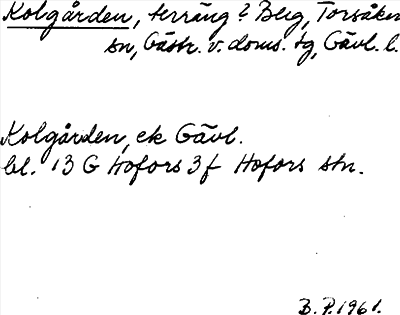 Kolgården, terräng? Beg, Torsåker
sn, Gästr. v. doms. tg, Gävl. l.
Kolgården, ek Gävl.
bl. 13 G Hofors 3f Hofors stn.
B. P. 1961.